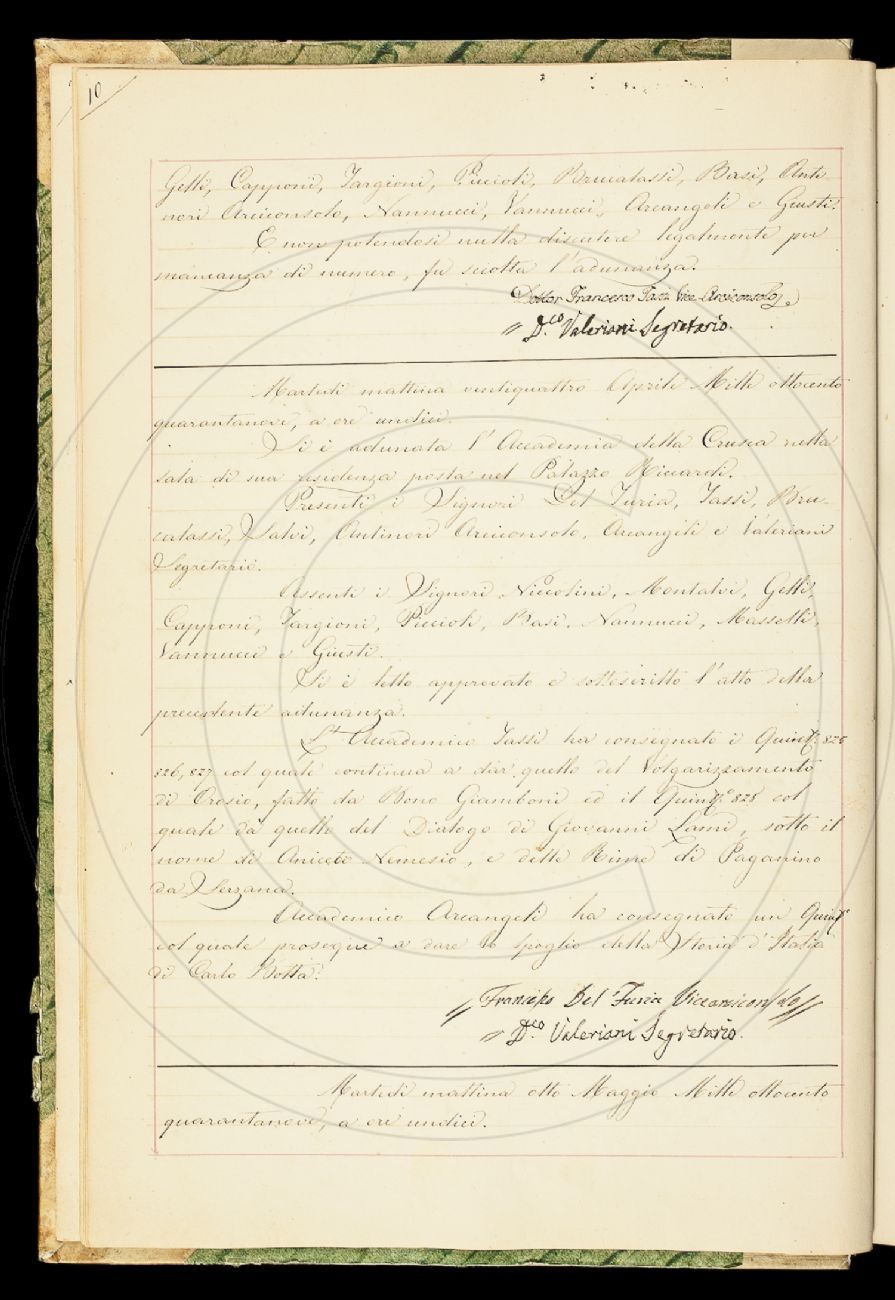 10
Gelli, Capponi, Targioni, Piccioli, Brucalassi, Basi, Anti-
nori Arciconsolo, Nannucci, Vannucci, Arcangeli e Giusti.
E non potendosi nulla discutere legalmente per
mancanza di numero, fu sciolta l'adunanza.
Dottor Francesco Tassi Vice Arciconsolo
D.co Valeriani Segretario.
Martedì mattina ventiquattro Aprile Mille ottocento
quarantanove, a ore undici.
Si è adunata l'Accademia della Crusca nella
sala di sua residenza posta nel Palazzo Riccardi.
Presenti i Signori Del Furia, Tassi, Bru-
calassi, Salvi, Antinori Arciconsolo, Arcangeli e Valeriani
Segretario.
Assenti i Signori Niccolini, Montalvi, Gelli,
Capponi, Targioni, Piccioli, Basi, Nannucci, Masselli,
Vannucci e Giusti.
Si è letto approvato e sottoscritto l'atto della
precedente adunanza.
L' Accademico Tassi ha consegnato i Quint. 825
826, 827 col quale continua a dar quello del Volgarizzamento
di Orosio, fatto da Bono Giamboni ed il Quint.o 828 col
quale dà quello del Dialogo di Giovanni Lami, sotto il
nome di Aniceto Nemesio, e delle Rime di Paganino
da Serzana.
Accademico Arcangeli ha consegnato un Quint.o
col quale prosegue a dare lo spoglio della Storia d'Italia
di Carlo Botta.
Francesco Del Furia Vicearciconsolo
D.co Valeriani Segretario.
Martedì mattina otto Maggio Mille ottocento
quarantanove, a ore undici.